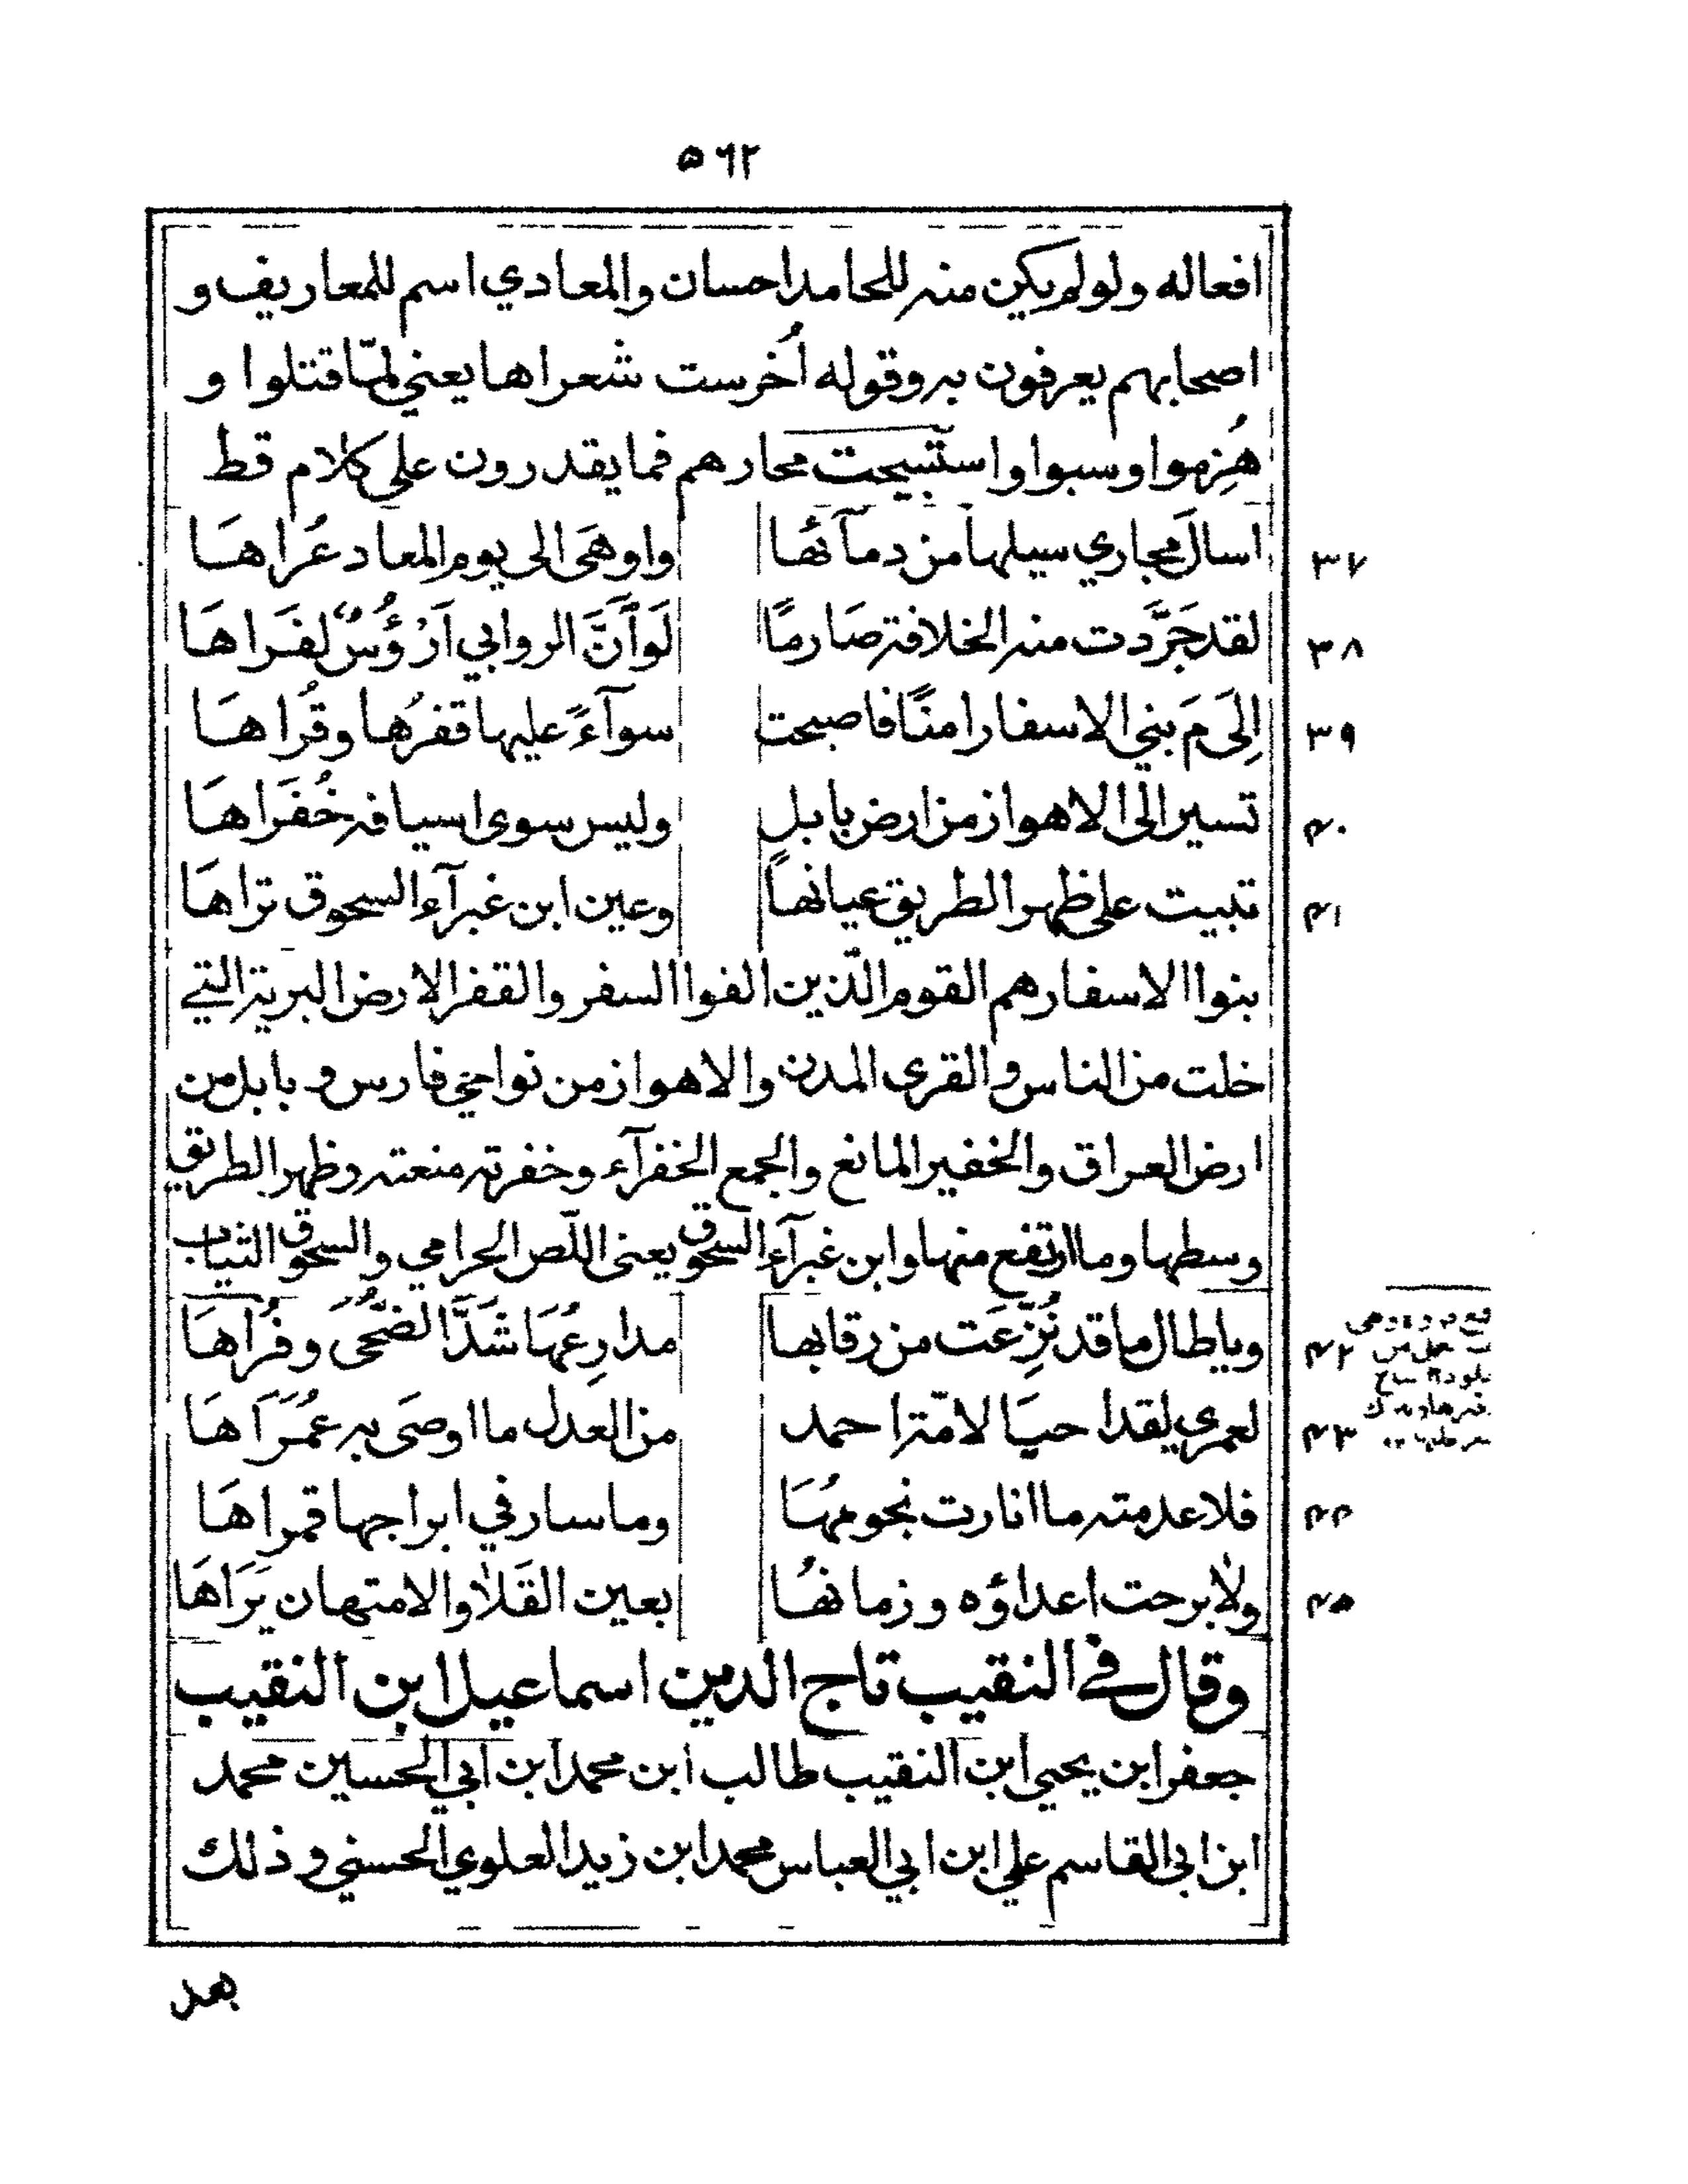 ٥٦٢
افعاله ولولم يكن منه للحامد احسان والمعادي اسم للمعاريف و
اصحابهم يعرفون به وقوله أُخرست شعراها يعني لمّا قتلوا و
هُزِموا وسبوا واستبيحت محارهم فما يقدرون على كلام قط
٣٧ اسالَ مجاري سيلها من دمآئها واوهَى الى يوم المعاد عُراهَا
٣٨ لقد جَرَّدت منه الخلافة صَارمًا لَوَاَنَّ الروابي اَرْؤُسٌ لفَراهَا
٣٩ اِلَى مَ بني الاسفار امنًا فاصبحت سوآءً عليها قفرُها وقُراهَا
٤٠ تسير الى الاهواز من ارض بابل وليس سوى اسيافه خُفَراهَا
٤١ تبيت على ظهر الطريق عيانهاً وعين ابن غبرآء السحوق تراهَا
بنوا الاسفار هم القوم الّذين الفوا السفر والقفر الارض البرية التي
خلت من الناس والقرى المدن والاهواز من نواحي فارس و بابل من
ارض العراق والخفير المانع والجمع الخفرآء وخفرته منعته وظهر الطريق
وسطها وما ارتفع منها وابن غبرآء السحوق يعنى اللّص الحرامي والسحوق الثياب
٤٢ وياطال ما قد نُزِّعَت من رقابها مدارِعُهَا شَدَّ الضُّحَى وفُراهَا
٤٣ لعمري لقد احيَا لامّة احمد من العدل ما اوصَى به عُمَرَاهَا
٤٤ فلا عدمته ما انارت نجومُهَا وما سار في ابراجها قمراهَا
٤٥ ولا برحت اعداؤه وزمانهُا بعين القَلا والامتهان يَرَاهَا
وقال في النقيب تاج الدين اسماعيل ابن النقيب
جعفر ابن يحيى ابن النقيب طالب ابن محمد ابن ابي الحسين محمد
ابن ابى القاسم علي ابن ابي العباس محمد ابن زيد العلوي الحسني وذلك
بعد